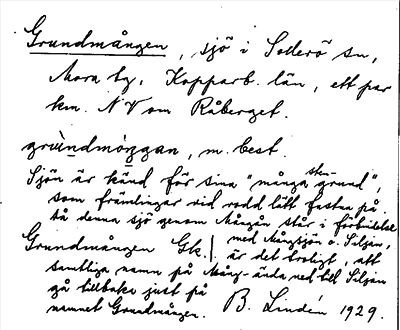 Grundmången, sjö i Sollerö sn,
Mora tg. Kopparb. län, ett par
km. NV om Råberget.
grùndmóŋgan, m. best.
Sjön är känd för sina "många sten-grund",
som främlingar vid rodd lätt fastna på.
Då denna sjö genom Mångån står i förbindelse
med Mångsjön o. Siljan,
Grundmången Gk.) är det troligt, att
samtliga namn på Mång- ända ned till Siljan
gå tillbaka just på
namnet Grundmången. B. Lindén 1929.